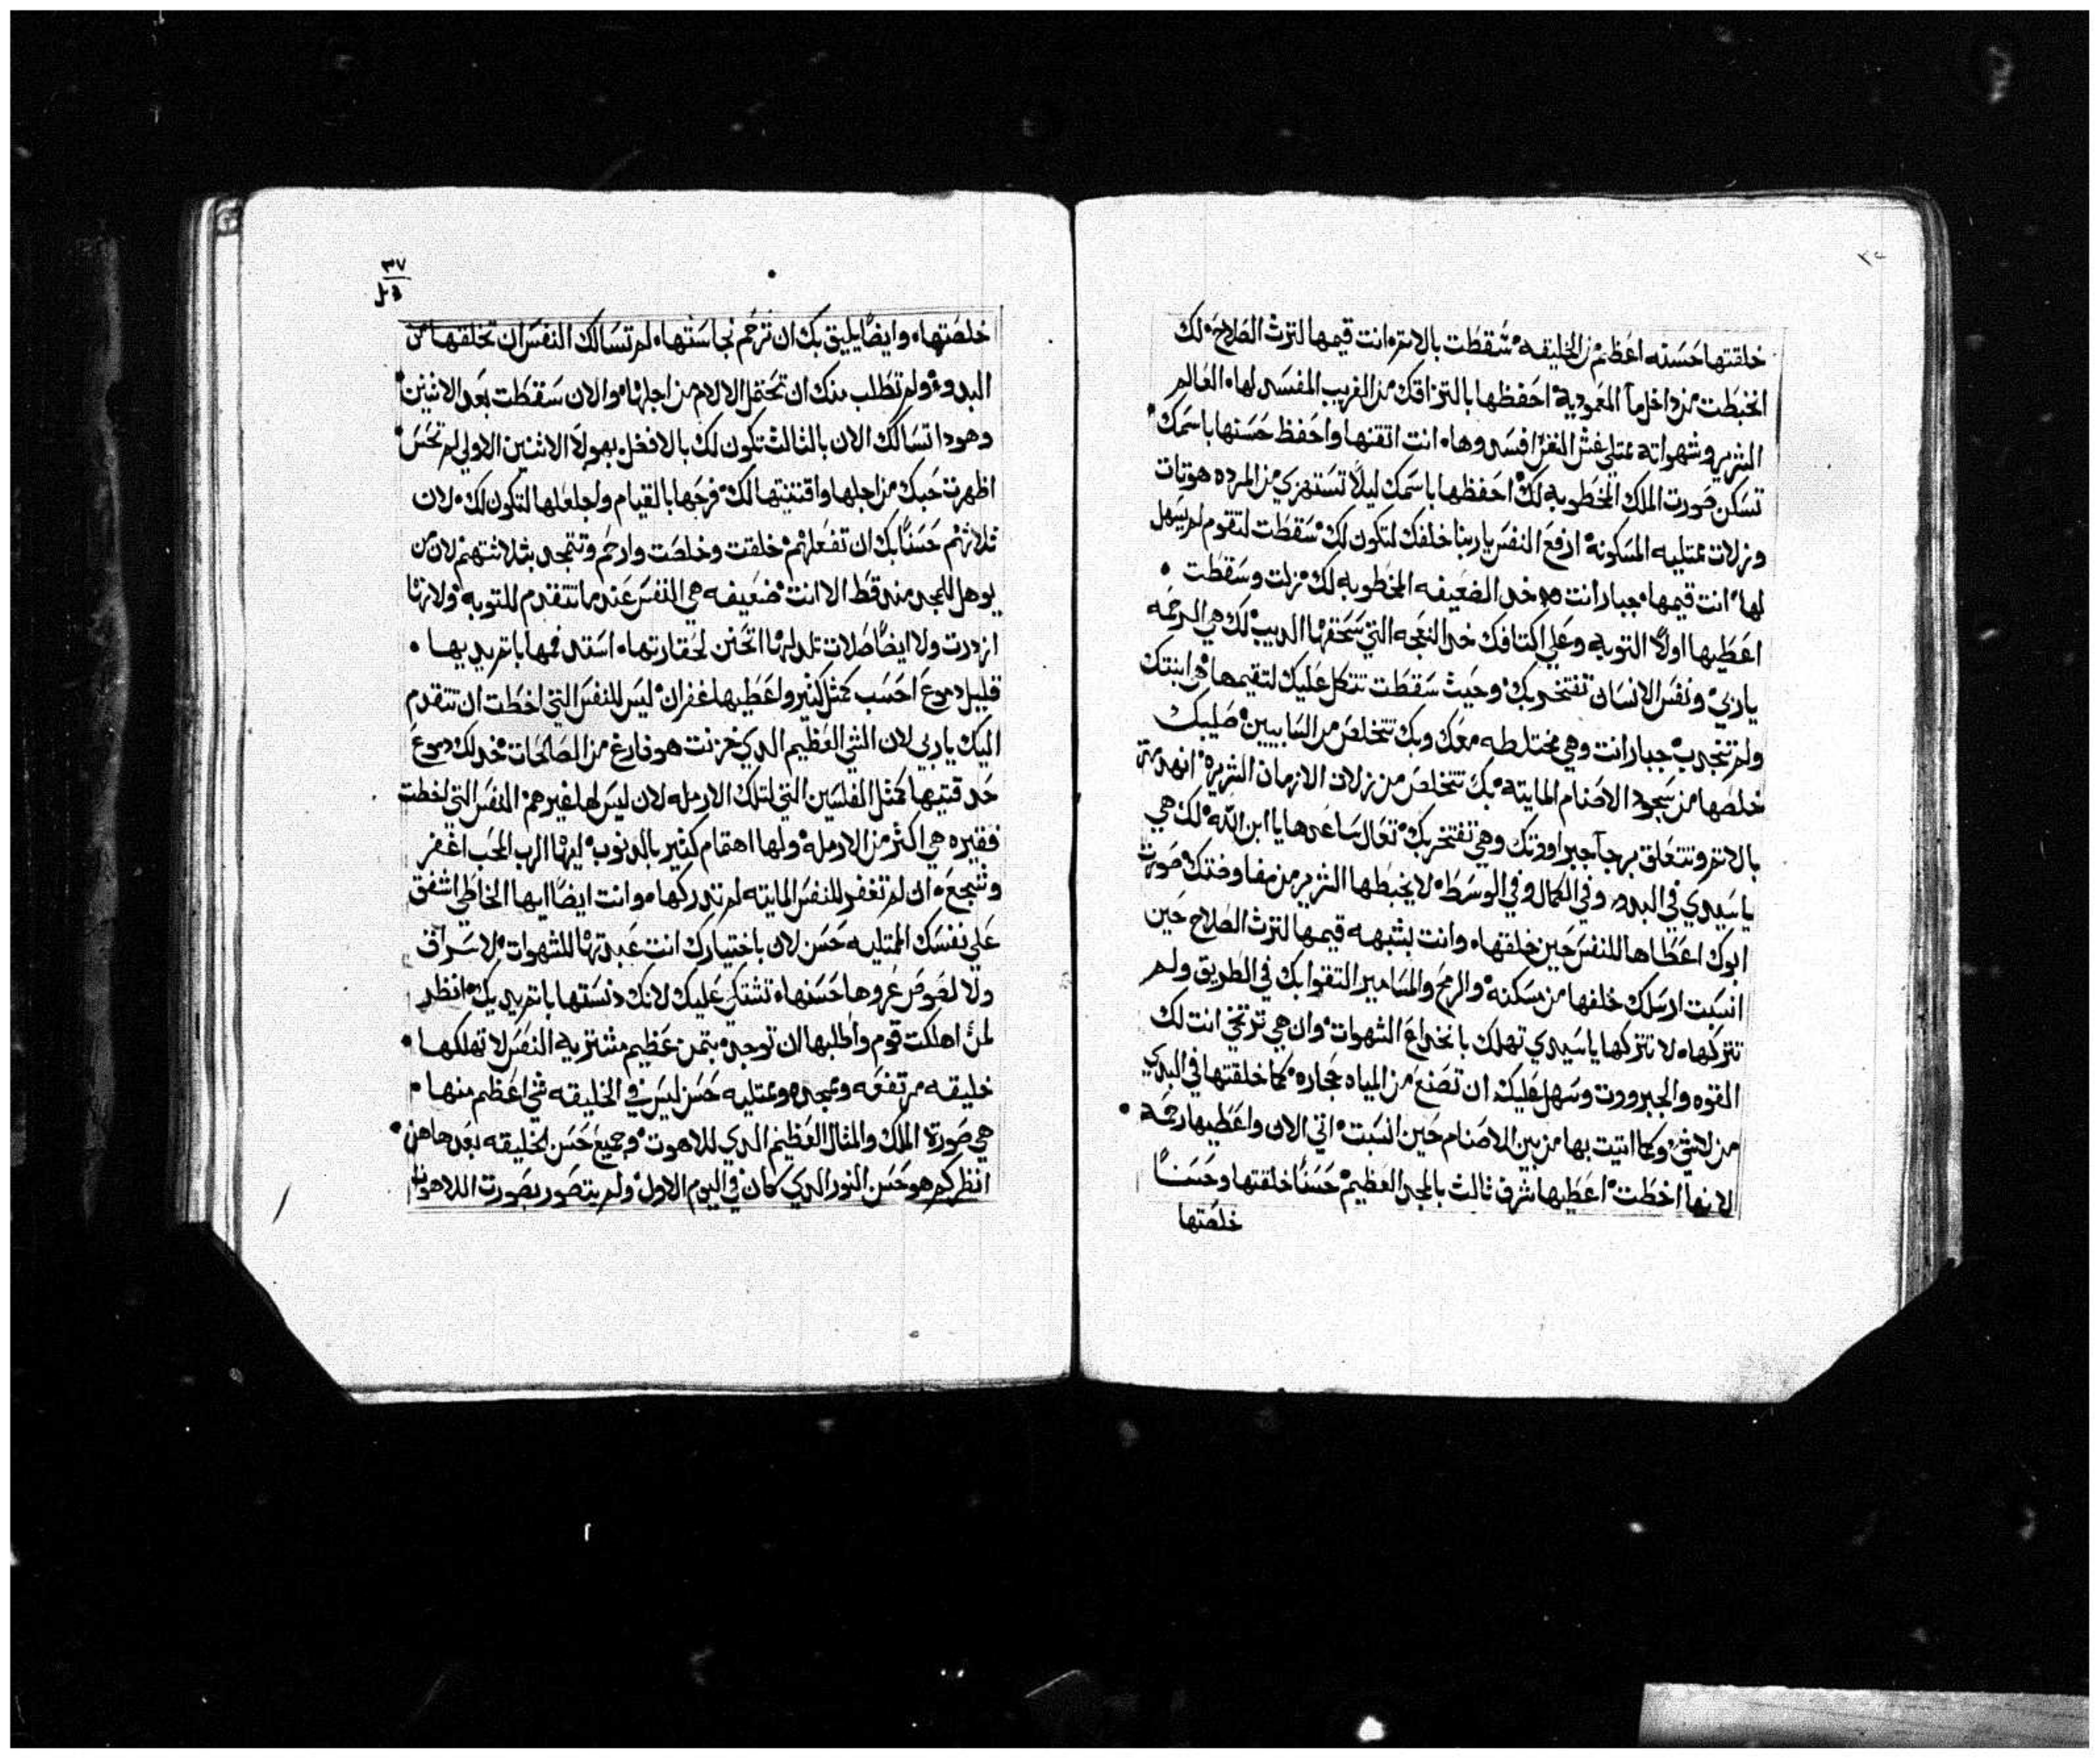 خلقتها حسنه اعظم من الخليقه سقطت بالاثم انت قيمها لترث الصلاح لك
اخبطت من داخل مآ المعموديه احفظها بالتزاقك من الغريب المفسد لها العالم
الشرير وشهواته ممتلي غش النفس افسدوها انت اتقنها واحفظ حسنها باسمك
تسكن صورت الملك المخطوبه لك احفظها باسمك ليلا تستهزي من المرده هوتات
وزلات ممتليه المسكونه ارفع النفس ياربنا خلفك لتكون لك سقطت لتقوم لم يسهل
لها انت قيمها جبار انت خد الضعيفه المخطوبه لك زلت وسقطت
اعطيها اولا التوبه وعلي اكتافك خد النعجه التي سحقها الديب لك هي الرحمه
ياربي ونفس الانسان تفتخر بك وحيث سقطت تتكل عليك لتقيمها هي ابنتك
ولم تنجدب جبار انت وهي مختلطه معك وبك تتخلص من السابيين صليبك
خلصها من سجود الاصنام المايته بك تتخلص من زلات الازمان الشريره
بالاثم وتتعلق برجآ جبراووتك وهي تفتخر بك تعال ساعدها يا ابن الله لك هي
ياسيدي في البدو وفي الكمال وفي الوسط لا يخبطها الشرير من مفاوضتك صورة
ابوك اعطاها للنفس حين خلقتها وانت بشبهه قيمها لترث الصلاح حين
انسبت ارسلك خلفها من مسكنه والرمح والمسامير التقوا بك في الطريق ولم
تتركها لا تتركها ياسيدي تهلك بانخداع الشهوات وان هي ترتخي انت لك
القوه والجبرووت وسهل عليك ان تصنع من المياه حجاره كما خلقتها في البدي
من لاشي وكما اتيت بها من بين الاصنام حين انسبت اتي الان واعطيها رحمه
لانها اخطت اعطيها شرف ثالث بالمجد العظيم حسنا خلقتها وحسنا
خلصتها
٣٧
خلصتها وايضا يليق بك ان ترحم نجاستها لم تسالك النفس ان تخلقها من
البدو ولم تطلب منك ان تحتمل الالام من اجلها والان سقطت بعد الاثنين
وهودا تسالك الان بالثالث تكون لك بالافضل بهولا الاثنين الاولي لم تحس
اظهرت حبك من اجلها واقتنيتها لك فرحها بالقيام واجعلها لتكون لك لان
ثلاثتهم حسنا بك ان تفعلهم خلقت وخلصت وارحم وتتمجد بثلاثتهم لان من
يوهل للمجد منه قط الا انت ضعيفه هي النفس عندما تتقدم للتوبه ولانها
ازدرت ولا ايضا صلات تلد لها اتحنن لحقارتها استد فمها باتم يديها
قليل دموع احسب كمثل كثير واعطيها غفران ليس للنفس التي اخطت ان تتقدم
اليك ياربي لان الشي العظيم الدي خزنت هو فارغ من الصالحات خد لك دموع
حدقتيها كمثل الفلسين التي لتلك الارمله لان ليس لها غيرهم النفس التي اخطت
فقيره هي اكثر من الارمله ولها اهتمام كثير بالدنوب ايها الرب المحب اغفر
وشجع ان لم تغفر للنفس المايته لم تدركها وانت ايضا ايها الخاطي اشفق
علي نفسك الممتليه حسن لان باختيارك انت عبدتها للشهوات لا سراق
ولا لصوص عروها حسنها تشتكي عليك لانك دنستها باتم يديك انظر
لمن اهلكت قوم واطلبها ان توجد بتمن عظيم مشتريه النفس لا تهلكها
خليقه مرتفعه وممجده وممتليه حسن ليس في الخليقه شي اعظم منها
هي صورة الملك والمثال العظيم الدي للاهوت وجميع حسن الخليقه بعدها هن
انظر كم هو حسن النور الدي كان في اليوم الاول ولم يتصور بصورت اللاهوت